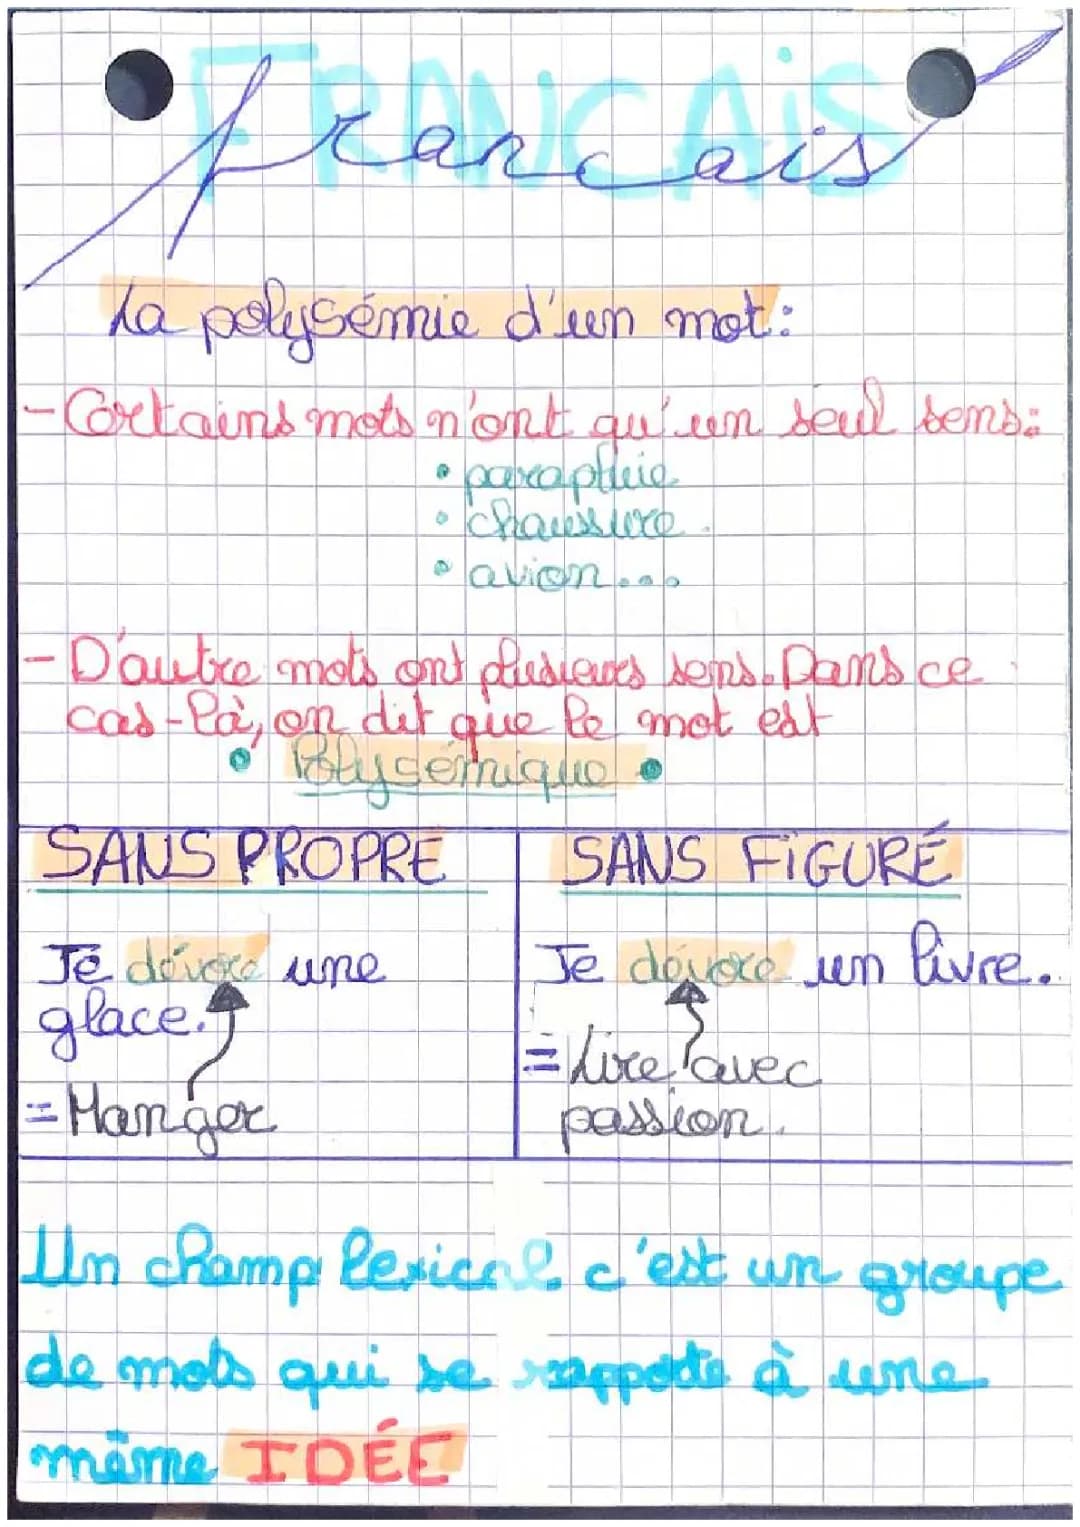 FRANCAiS
francais
La polysémie d'un mot:
- Certains mots n'ont qu'un seul sens:
• parapluie
• chaussure
• avion...
- D'autre mots ont plusieurs sens. Dans ce
cas-là, on dit que le mot est
• Polysémique •
SANS PROPRE
Je dévore une
glace.
= Manger
SANS FiGURÉ
Je dévore un livre.
= Lire avec
passion.
Un champ lexical c'est un groupe
de mots qui se rapporte à une
même IDÉE